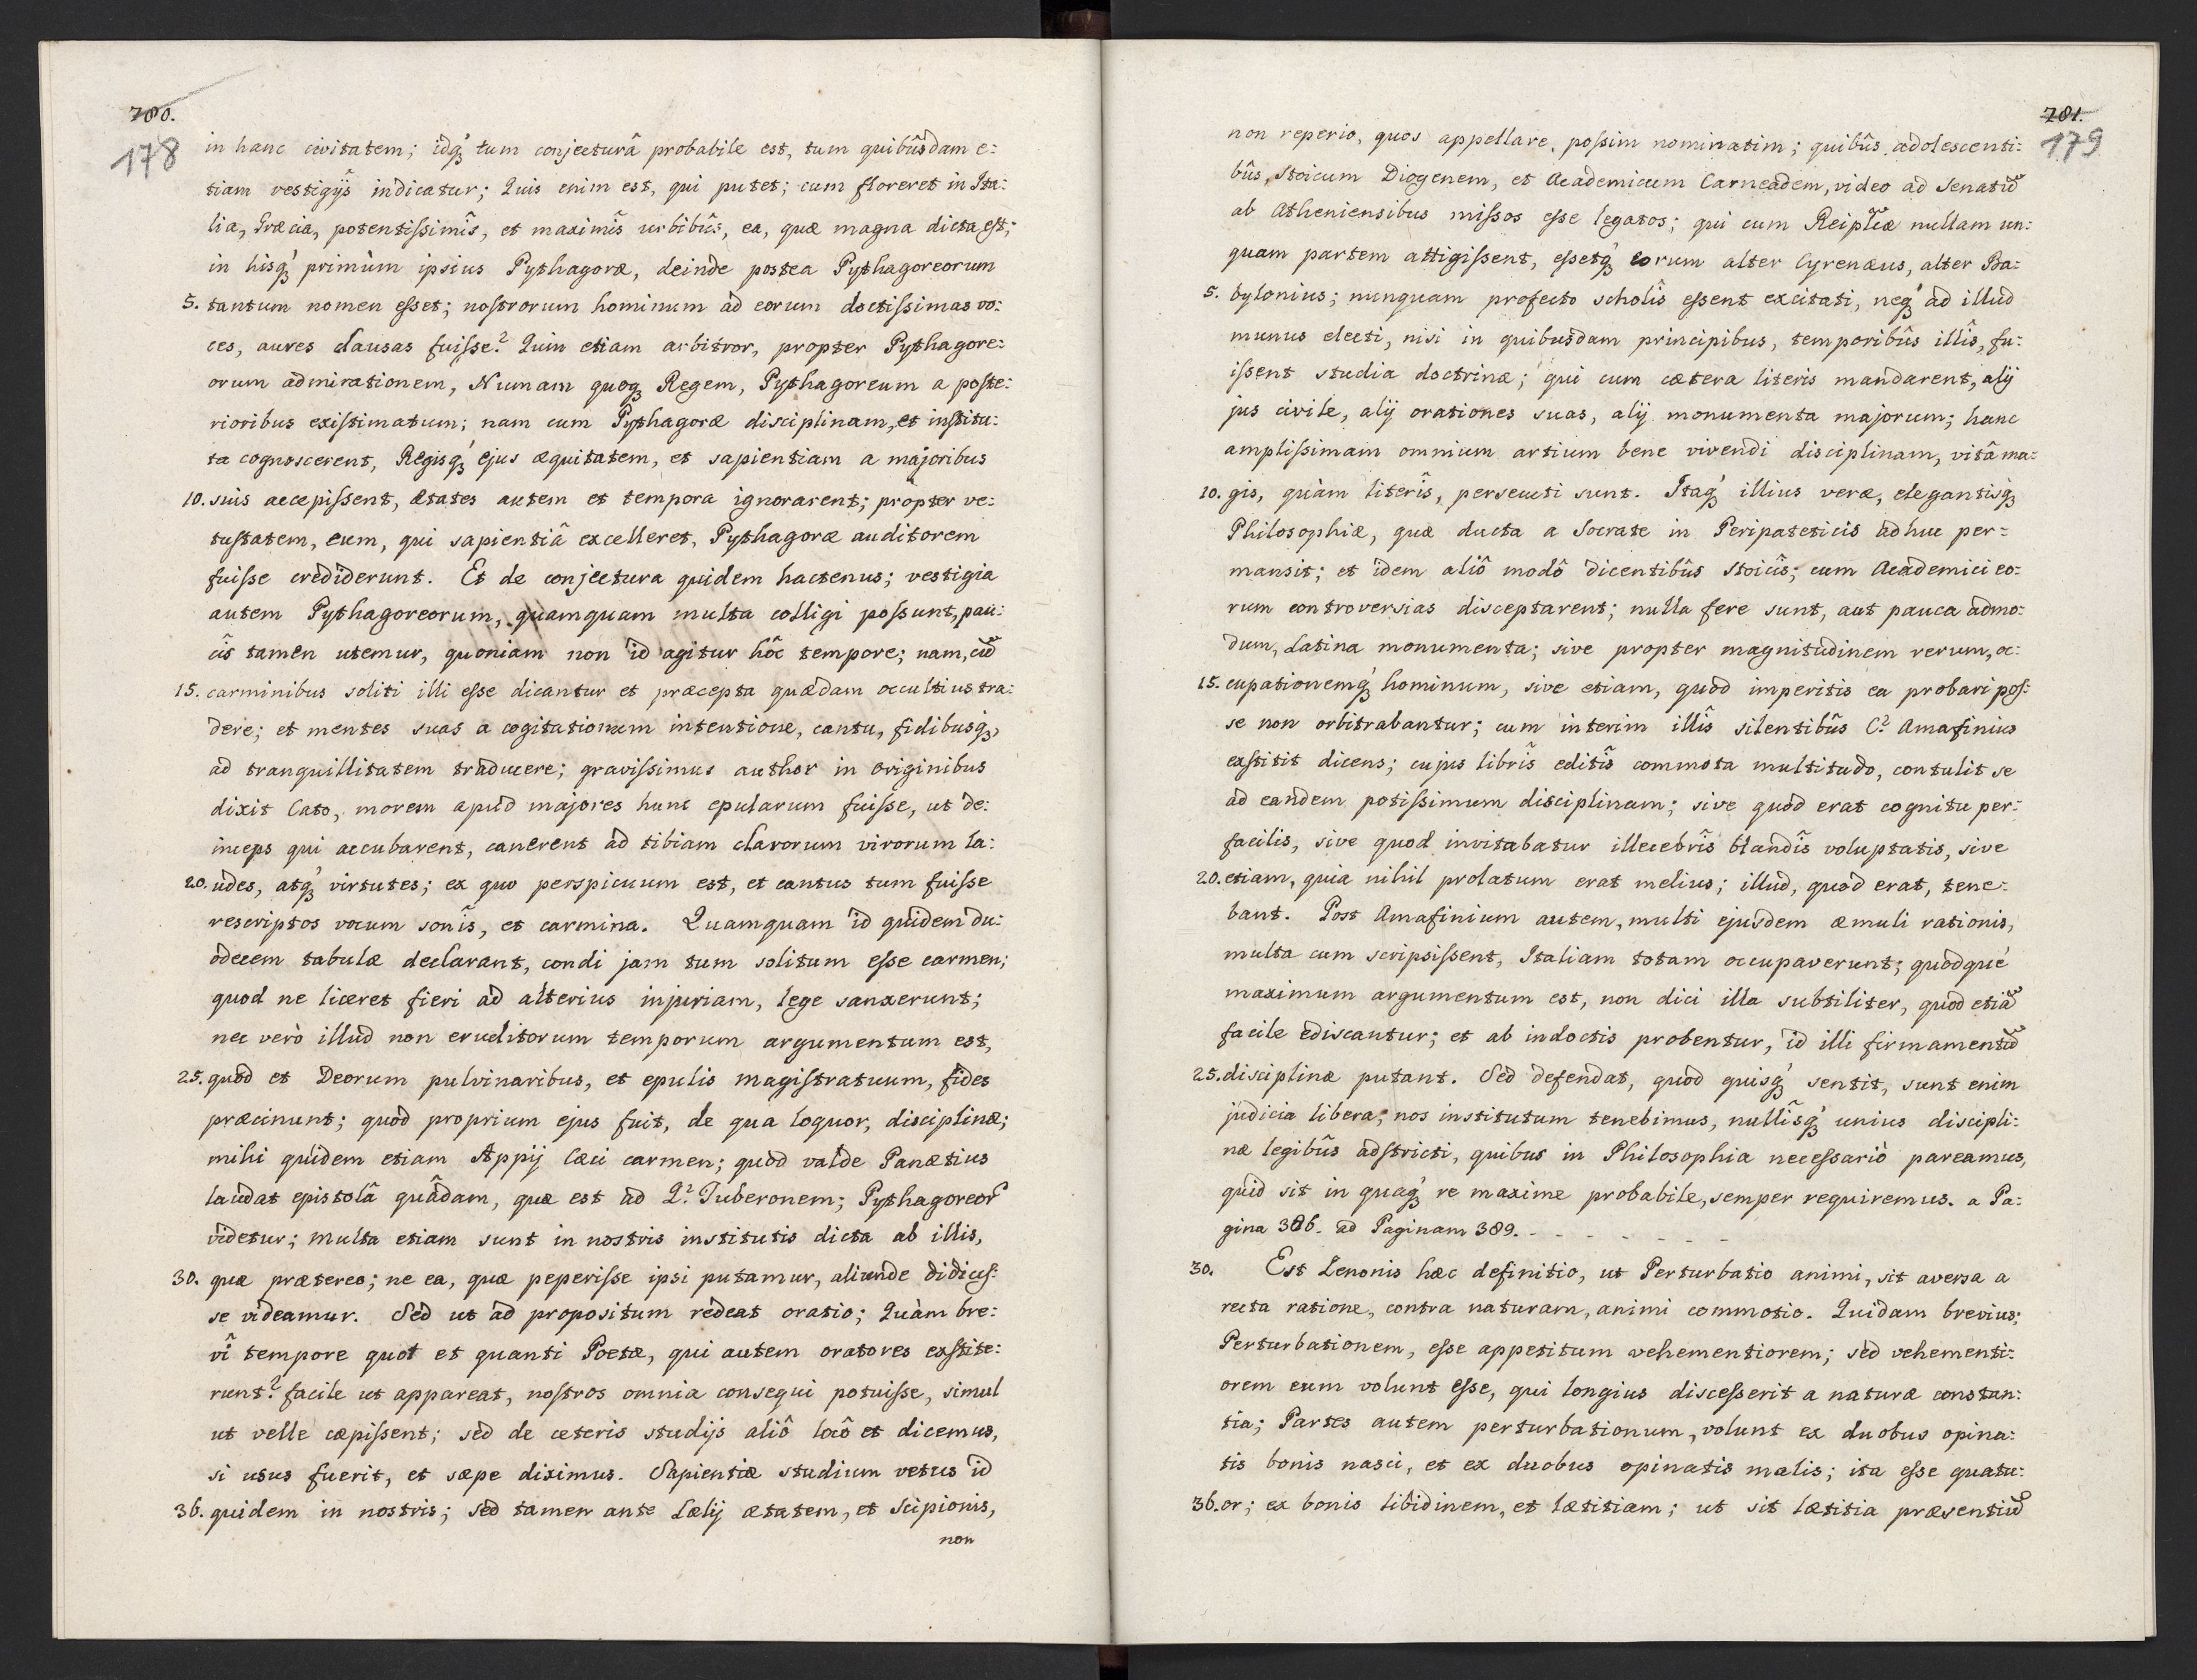 780.
178
in hanc civitatem; idq́ꝫ tum conjecturâ probabile est, tum quibûsdam e:
tiam vestigijs̃ indicatur; Quis enim est, qui putet; cum floreret in Ita:
lia, Græcia, potentissimîs, et maximîs urbibûs, ea, quæ magna dicta est;
in hisq́ꝫ primùm ipsius Pythagoræ, deinde postea Pythagoreorum
5. tantum nomen esset; nostrorum hominum ad eorum doctissimas vo:
ces, aures clausas fuisse? Quin etiam arbitror, propter Pythagore:
orum admirationem, Numam quoqꝫ Regem, Pythagoreum a poste:
rioribus existimatum; nam cum Pythagoræ disciplinam, et institu:
ta cognoscerent, Regisq́ꝫ ejus æquitatem, et sapientiam a majoribus
10. suis accepissent, ætates autem et tempora ignorarent; propter ve:
tustatem, eum, qui sapientiâ excelleret, Pythagoræ auditorem
fuisse crediderunt. Et de conjectura quidem hactenus; vestigia
autem Pythagoreorum, quamquam multa colligi possunt, pau:
cîs tamen utemur, quoniam non id agitur hôc tempore; nam, cũ
15. carminibus soliti illi esse dicantur et præcepta quædam occultius tra:
dere; et mentes suas a cogitationum intentione, cantu, fidibusq́ꝫ,
ad tranquillitatem traducere; gravissimus author in originibus
dixit Cato, morem apud majores hunc epularum fuisse, ut de:
inceps qui accubarent, canerent ad tibiam clarorum virorum la:
20. udes, atq́ꝫ virtutes; ex quo perspicuum est, et cantus tum fuisse
rescriptos vocum sonîs, et carmina. Quamquam id quidem du:
odecem tabulæ declarant, condi jam tum solitum esse carmen;
quod ne liceret fieri ad alterius injuriam, lege sanxerunt;
nec verò illud non eruditorum temporum argumentum est,
25. quod et Deorum pulvinaribus, et epulis magistratuum, fides
præcinunt; quod proprium ejus fuit, de qua loquor, disciplinæ;
mihi quidem etiam Appij Cæci carmen; quod valde Panætius
laudat epistolâ quâdam, quæ est ad Q? Tuberonem; Pythagoreor
videtur; multa etiam sunt in nostris institutis dicta ab illis,
30. quæ prætereo; ne ea, quæ peperisse ipsi putamur, aliunde didicis:
se videamur. Sed ut ad propositum redeat oratio; Quàm bre:
vî tempore quot et quanti Poetæ, qui autem oratores exstite:
runt? facile ut appareat, nostros omnia consequi potuisse, simul
ut velle cæpissent; sed de ceteris studijs aliô locô et dicemus,
si usus fuerit, et sæpe diximus. Sapientiæ studium vetus id
36. quidem in nostris; sed tamen ante Lælij ætatem, et Scipionis,
non
781.
179
non reperio, quos appellare, possim nominatim; quibûs adolescenti:
bûs, Stoicum Diogenem, et Academicum Carneadem, video ad Senatũ
ab Atheniensibus missos esse legatos; qui cum Reiplcæ nullam un:
quam partem attigissent, essetq́ꝫ eorum alter Cyrenæus, alter Ba:
5. bylonius; nunquam profecto scholîs essent excitati, neq́ꝫ ad illud
munus electi, nisi in quibusdam principibus, temporibûs illîs, fu:
issent studia doctrinæ; qui cum cætera literis mandarent, alij
jus civile, alij orationes suas, alij monumenta majorum; hanc
amplissimam omnium artium bene vivendi disciplinam, vitâ ma:
10. gis, quàm literîs, persecuti sunt. Itaq́ꝫ illius veræ, elegantisq́ꝫ
Philosophiæ, quæ ducta a Socrate in Peripateticis adhuc per=
mansit; et idem aliô modô dicentibûs Stoicîs; cum Academici eo:
rum controversias disceptarent; nulla fere sunt, aut pauca admo:
dum, Latina monumenta; sive propter magnitudinem rerum, oc:
15. cupationemq́ꝫ hominum, sive etiam, quod imperitis ea probari pos:
se non orbitrabantur; cum interim illîs silentibûs C? Amafinius
exstitit dicens; cujus librîs editîs commota multitudo, contulit se
ad eandem potissimum disciplinam; sive quod erat cognitu per:
facilis, sive quod invitabatur illecebrîs blandîs voluptatis, sive
20. etiam, quia nihil prolatum erat melius; illud, quod erat, tene:
bant. Post Amafinium autem, multi ejusdem æmuli rationis,
multa cum scripsissent, Italiam totam occupaverunt; quodque
maximum argumentum est, non dici illa subtiliter, quod etiã
facile ediscantur; et ab indoctis probentur, id illi firmamentũ
25. disciplinæ putant. Sed defendat, quod quisq́ꝫ sentit, sunt enim
judicia libera; nos institutum tenebimus, nullîsq́ꝫ unius discipli:
næ legibûs adstricti, quibus in Philosophia necessariò pareamus,
quid sit in quaq́ꝫ re maxime probabile, semper requiremus. a Pa:
gina 386. ad Paginam 389. - - - - - - -
30. Est Zenonis hæc definitio, ut Perturbatio animi, sit aversa a
recta ratione, contra naturam, animi commotio. Quidam brevius;
Perturbationem, esse appetitum vehementiorem; sed vehementi:
orem eum volunt esse, qui longius discesserit a naturæ constan:
tia; Partes autem perturbationum, volunt ex duobus opina:
tis bonis nasci, et ex duobus opinatis malis; ita esse quatu:
36. or; ex bonis libidinem, et lætitiam; ut sit lætitia præsentiũ